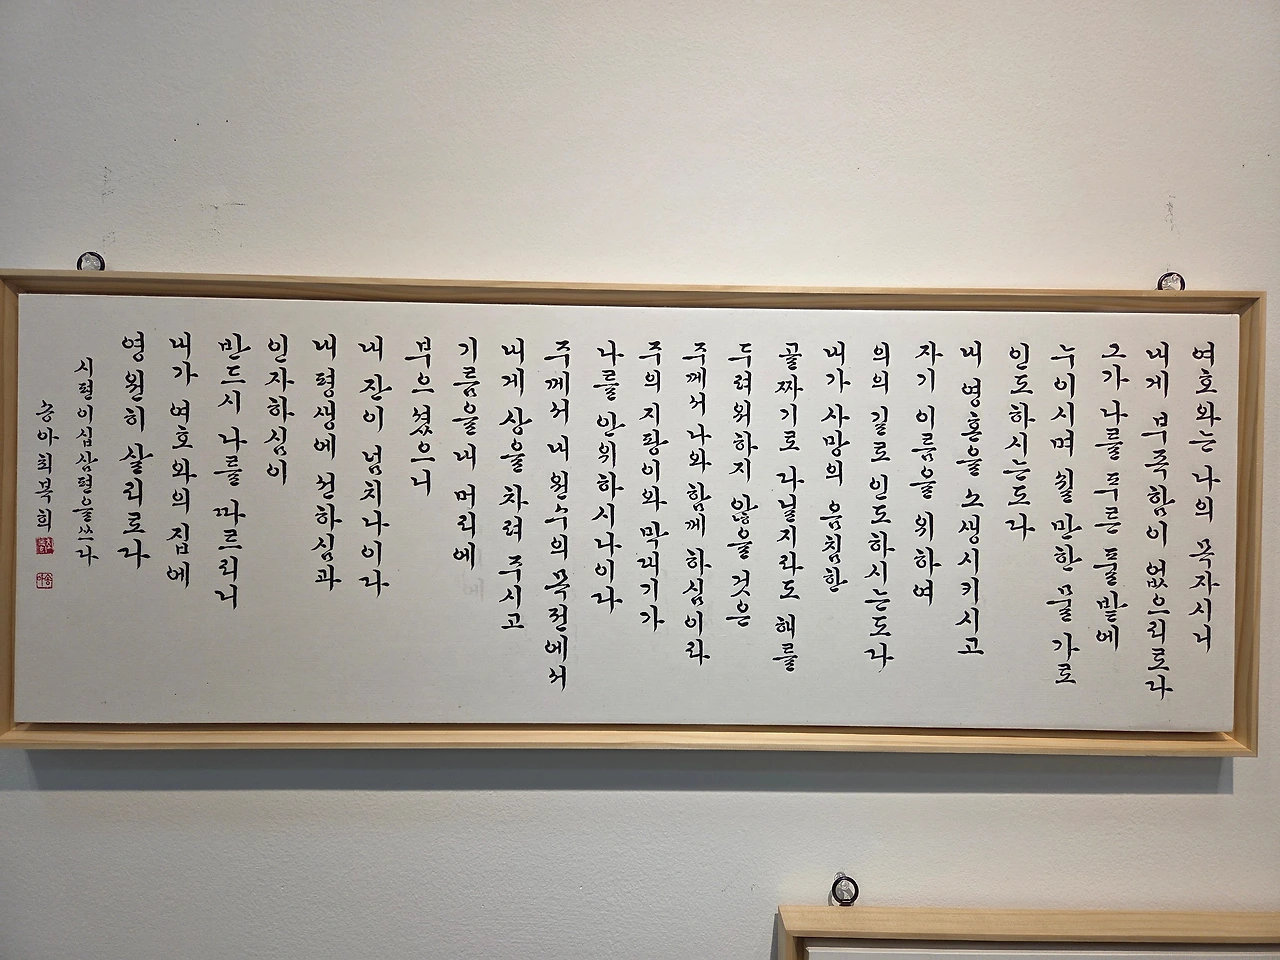 여호와는 나의 목자시니
내게 부족함이 없으리로다
그가 나를 푸른 풀밭에
누이시며 쉴 만한 물 가로
인도하시는도다
내 영혼을 소생시키시고
자기 이름을 위하여
의의 길로 인도하시는도다
내가 사망의 음침한
골짜기로 다닐지라도 해를
두려워하지 않을 것은
주께서 나와 함께 하심이라
주의 지팡이와 막대기가
나를 안위하시나이다
주께서 내 원수의 목전에서
내게 상을 차려 주시고
기름을 내 머리에
부으셨으니
내 잔이 넘치나이다
내 평생에 선하심과
인자하심이
반드시 나를 따르리니
내가 여호와의 집에
영원히 살리로다
시편이십삼편을쓰다
송아최복희